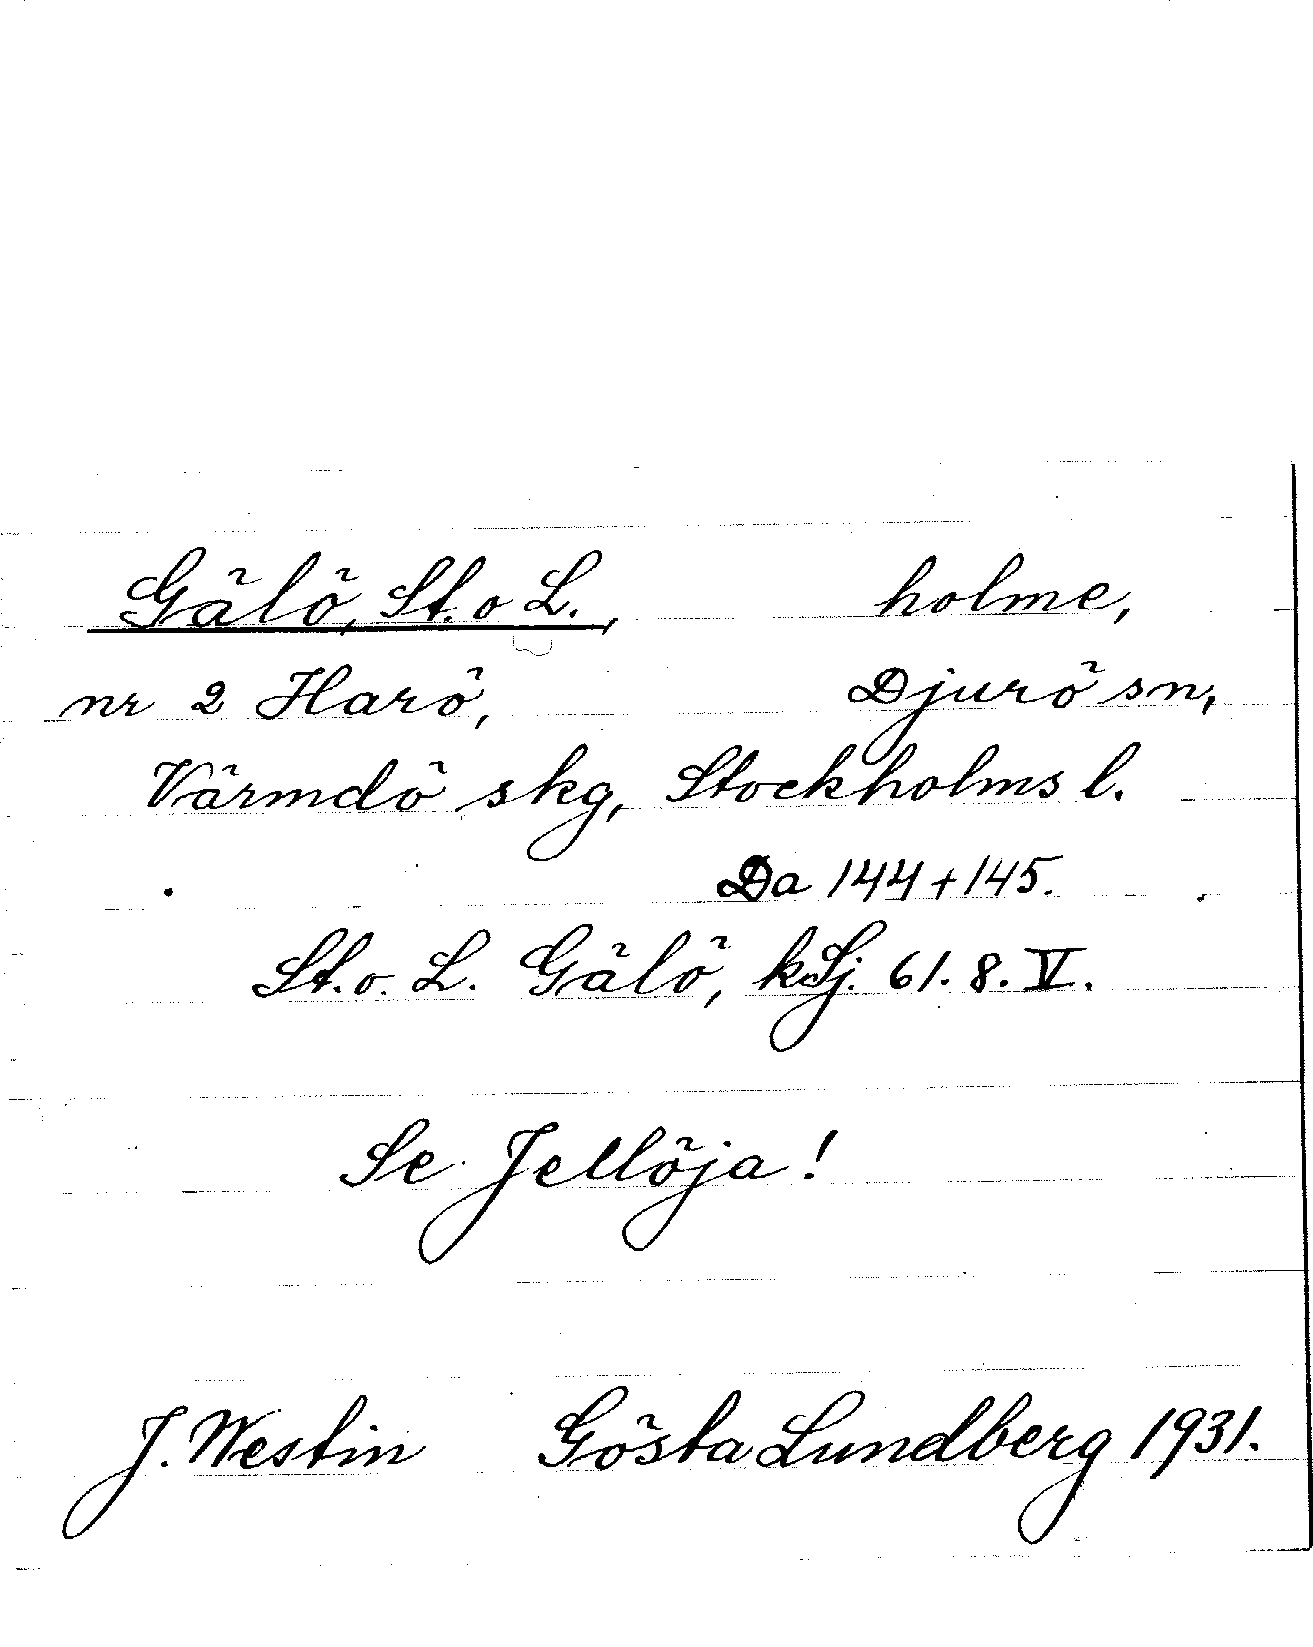 Gälö, St. o L., holme,
nr 2 Harö, Djurö sn,
Värmdö skg, Stockholms l.
Da 144 + 145.
St. o. L. Gälö, kSj. 61. 8. V.
Se Jellöja!
J. Westin Gösta Lundberg 1931.